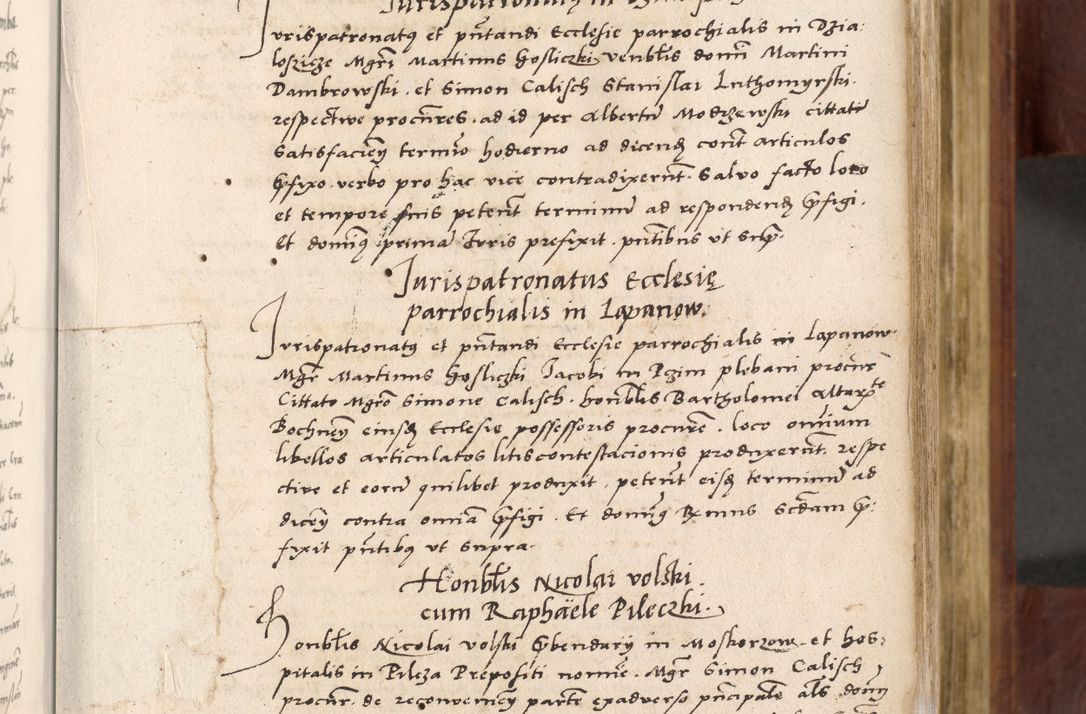 Jurispatronatus in
urispatronatꝰ et pñtandi Ecclesie parrochialis in Dzia:
loszicze Mgri Martinus Gosliczki venblis domi Martini
Dambrowski . et Simon Calisch Stanislai Luthomyrski .
respective procures . ad id per Albertu Modrzewski cittati
Satisfacieȝ termio hodierno ad dicenđ cont articulos
p̃fixo . verbo pro hac vice contradixerut . Salvo facto loco
et tempore suis peterut terminu ad respondenđ p̃figi .
Et dominꝰ prima Juris prefixit . pñtibus ut sup̃ .
Jurispatronatus Ecclesię
parrochialis in Lapanow.
Jurispatronatꝰ et pñtandi Ecclesie parrochialis in Lapanow
Mgr Martinus Gosliczki Jacobi in Rzim plebani procur
Cittato Mgro Simone Calisch . honblis Bartholomei Altarꝫte
Bochneȝ eiusđ Ecclesie possessoris procure . loco omium
libellos articulatos litiscontestacionis produxerunt . respe
ctive et eoru quilibet produxit . peterut eisđ terminu ad
diceȝ contra omia p̃figi . Et dominꝰ Scdam p̃:
fixit pñtibꝰ ut supra .
Honblis Nicolai Volski .
cum Raphäele Pileczki .
Honblis Nicolai Volski p̃bendarij in Moskorzow et hos:
pitalis in Pilcza Prepositi nomie . Mgr Simon Calisch
procur . de reconvenieȝ parte exadverso pñcipale als domȝ